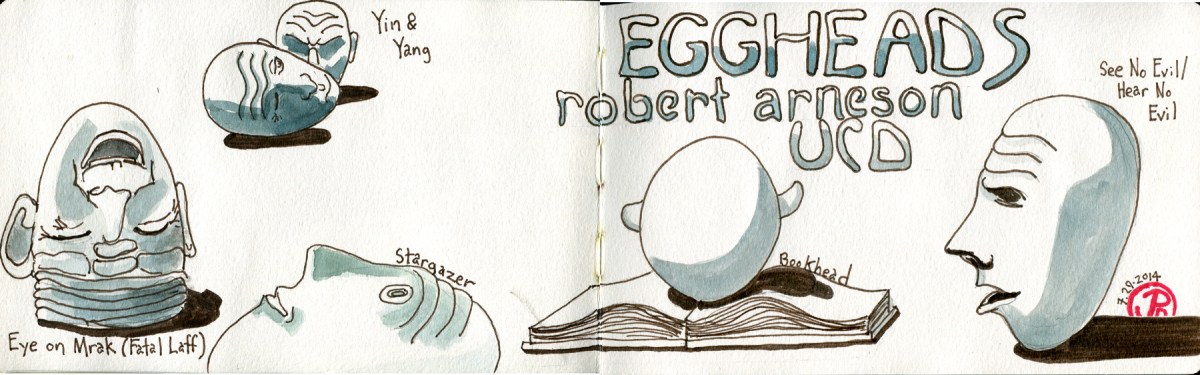 Yin &
Yang
EGGHEADS
robert arneson
UCD
See No Evil/
Hear No
Evil
Stargazer
Bookhead
7-29-2014
Eye on Mrak (Fatal Laff)